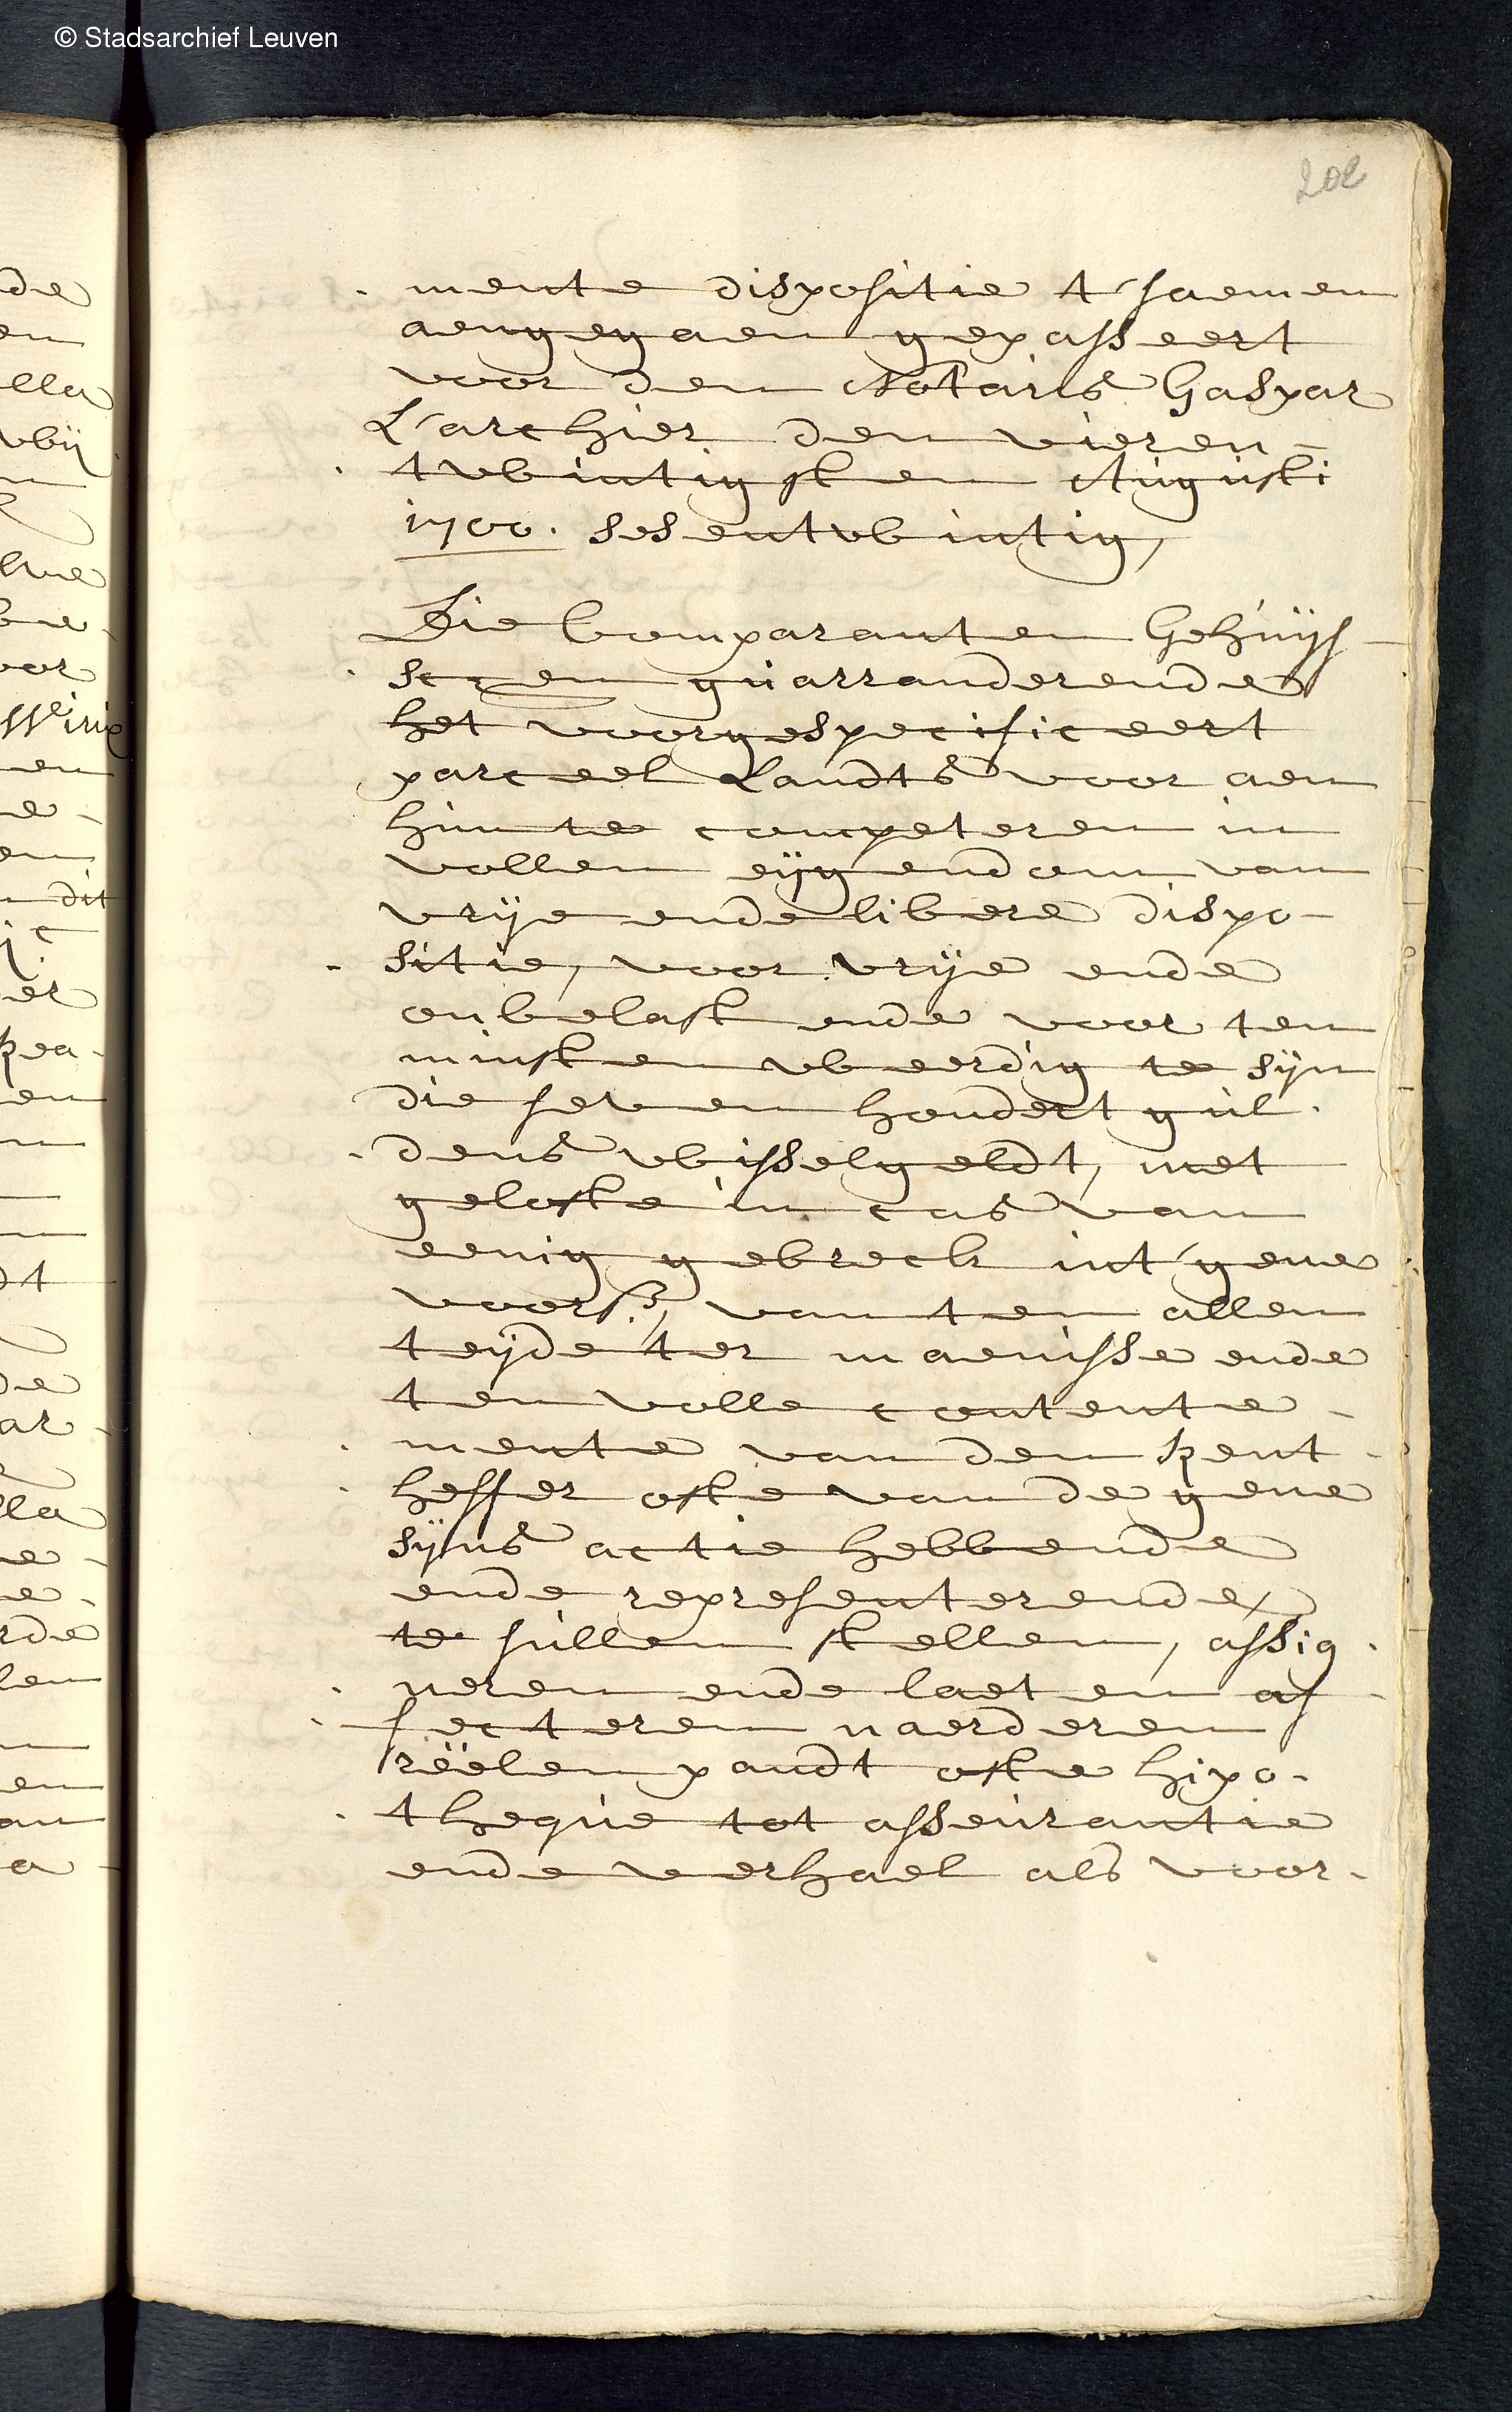 © Stadsarchief Leuven
202
mente dispositie t'saemen
aengegaen gepasseert
voor den Notaris Gaspar
L'archier den vieren-
twintigsten Augusti
1700. sesentwintig,
Die Comparanten Gehuijs-
scen guarranderende
het voorgespecificeert
parceel Landts voor aen
hun te competeren in
vollen eijgendom van
vrije ende libere dispo-
sitie, voor vrije ende
onbelast ende voor ten
minsten weerdig te sijn
die seven hondert gul-
dens wisselgeldt, met
gelofte in cas van
eenig gebreck int'gene
voors:, van ten allen
teijde ter maenisse ende
ten volle contente-
mente van den Rent-
heffer ofte van degene
sijns actie hebbende
ende representerende,
te sullen stellen, assig-
neren ende laeten af-
fecteren naerderen
reëelen pandt ofte hipo-
theque tot asseurantie
ende verhael als voor-